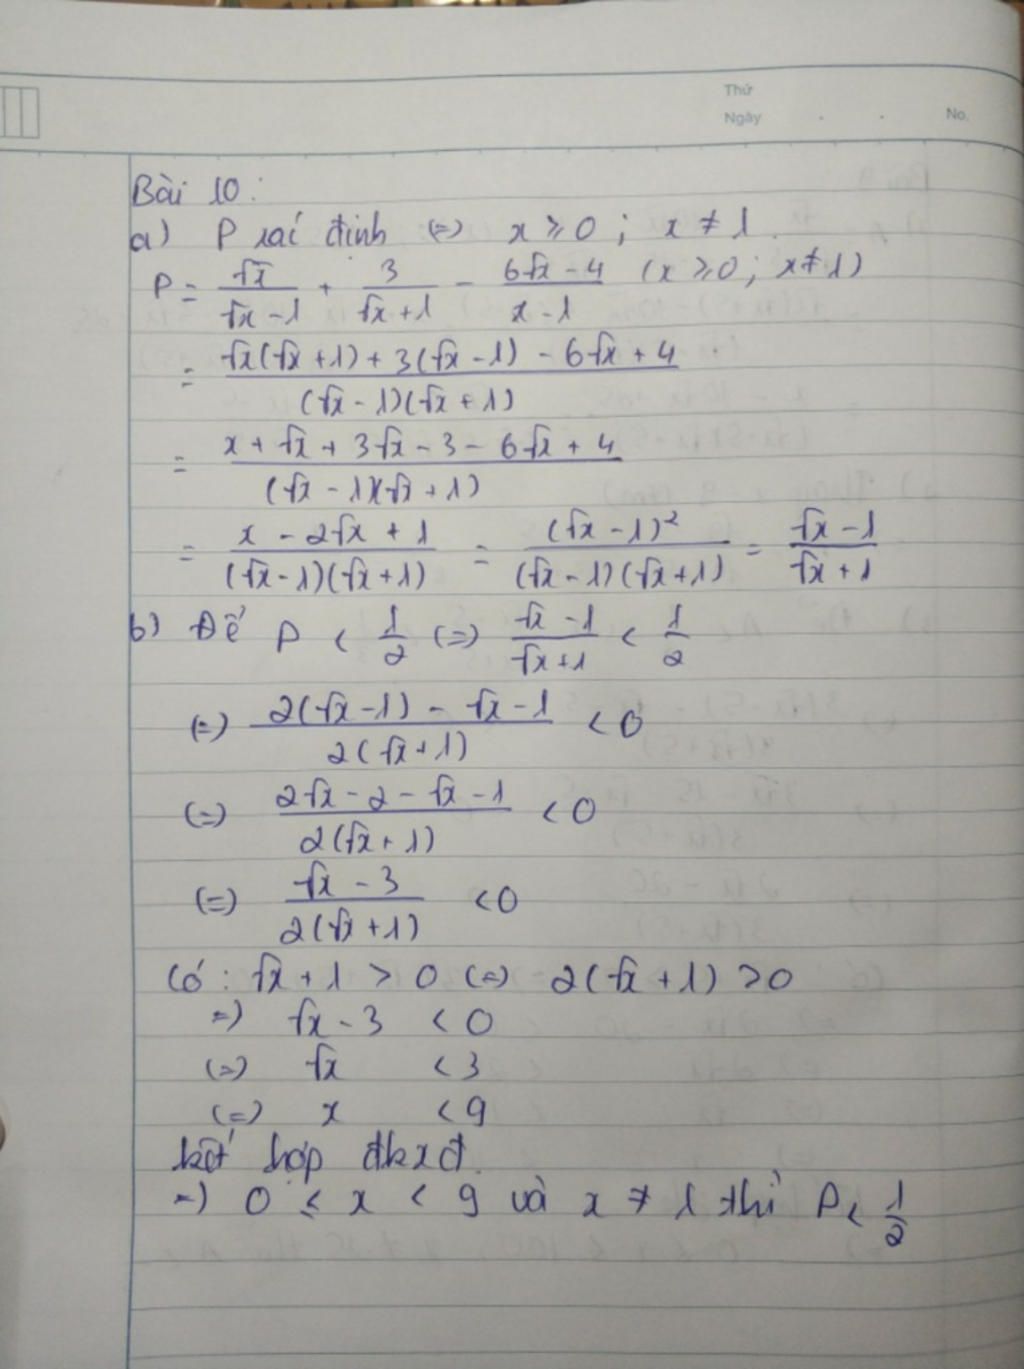 Thứ
Ngày . . No.
Bài 10:
a) P xác định (=) x ≥ 0 ; x ≠ 1.
P = √x/(√x - 1) + 3/(√x + 1) - (6√x - 4)/(x - 1) (x ≥ 0; x ≠ 1)
= (√x(√x + 1) + 3(√x - 1) - 6√x + 4)/((√x - 1)(√x + 1))
= (x + √x + 3√x - 3 - 6√x + 4)/((√x - 1)(√x + 1))
= (x - 2√x + 1)/((√x - 1)(√x + 1)) = (√x - 1)²/((√x - 1)(√x + 1)) = (√x - 1)/(√x + 1)
b) Để P < 1/2 (=) (√x - 1)/(√x + 1) < 1/2
(=) (2(√x - 1) - √x - 1)/(2(√x + 1)) < 0
(=) (2√x - 2 - √x - 1)/(2(√x + 1)) < 0
(=) (√x - 3)/(2(√x + 1)) < 0
Có : √x + 1 > 0 (=) 2(√x + 1) > 0
=) √x - 3 < 0
(=) √x < 3
(=) x < 9
kết hợp đkxđ.
=) 0 ≤ x < 9 và x ≠ 1 thì P < 1/2